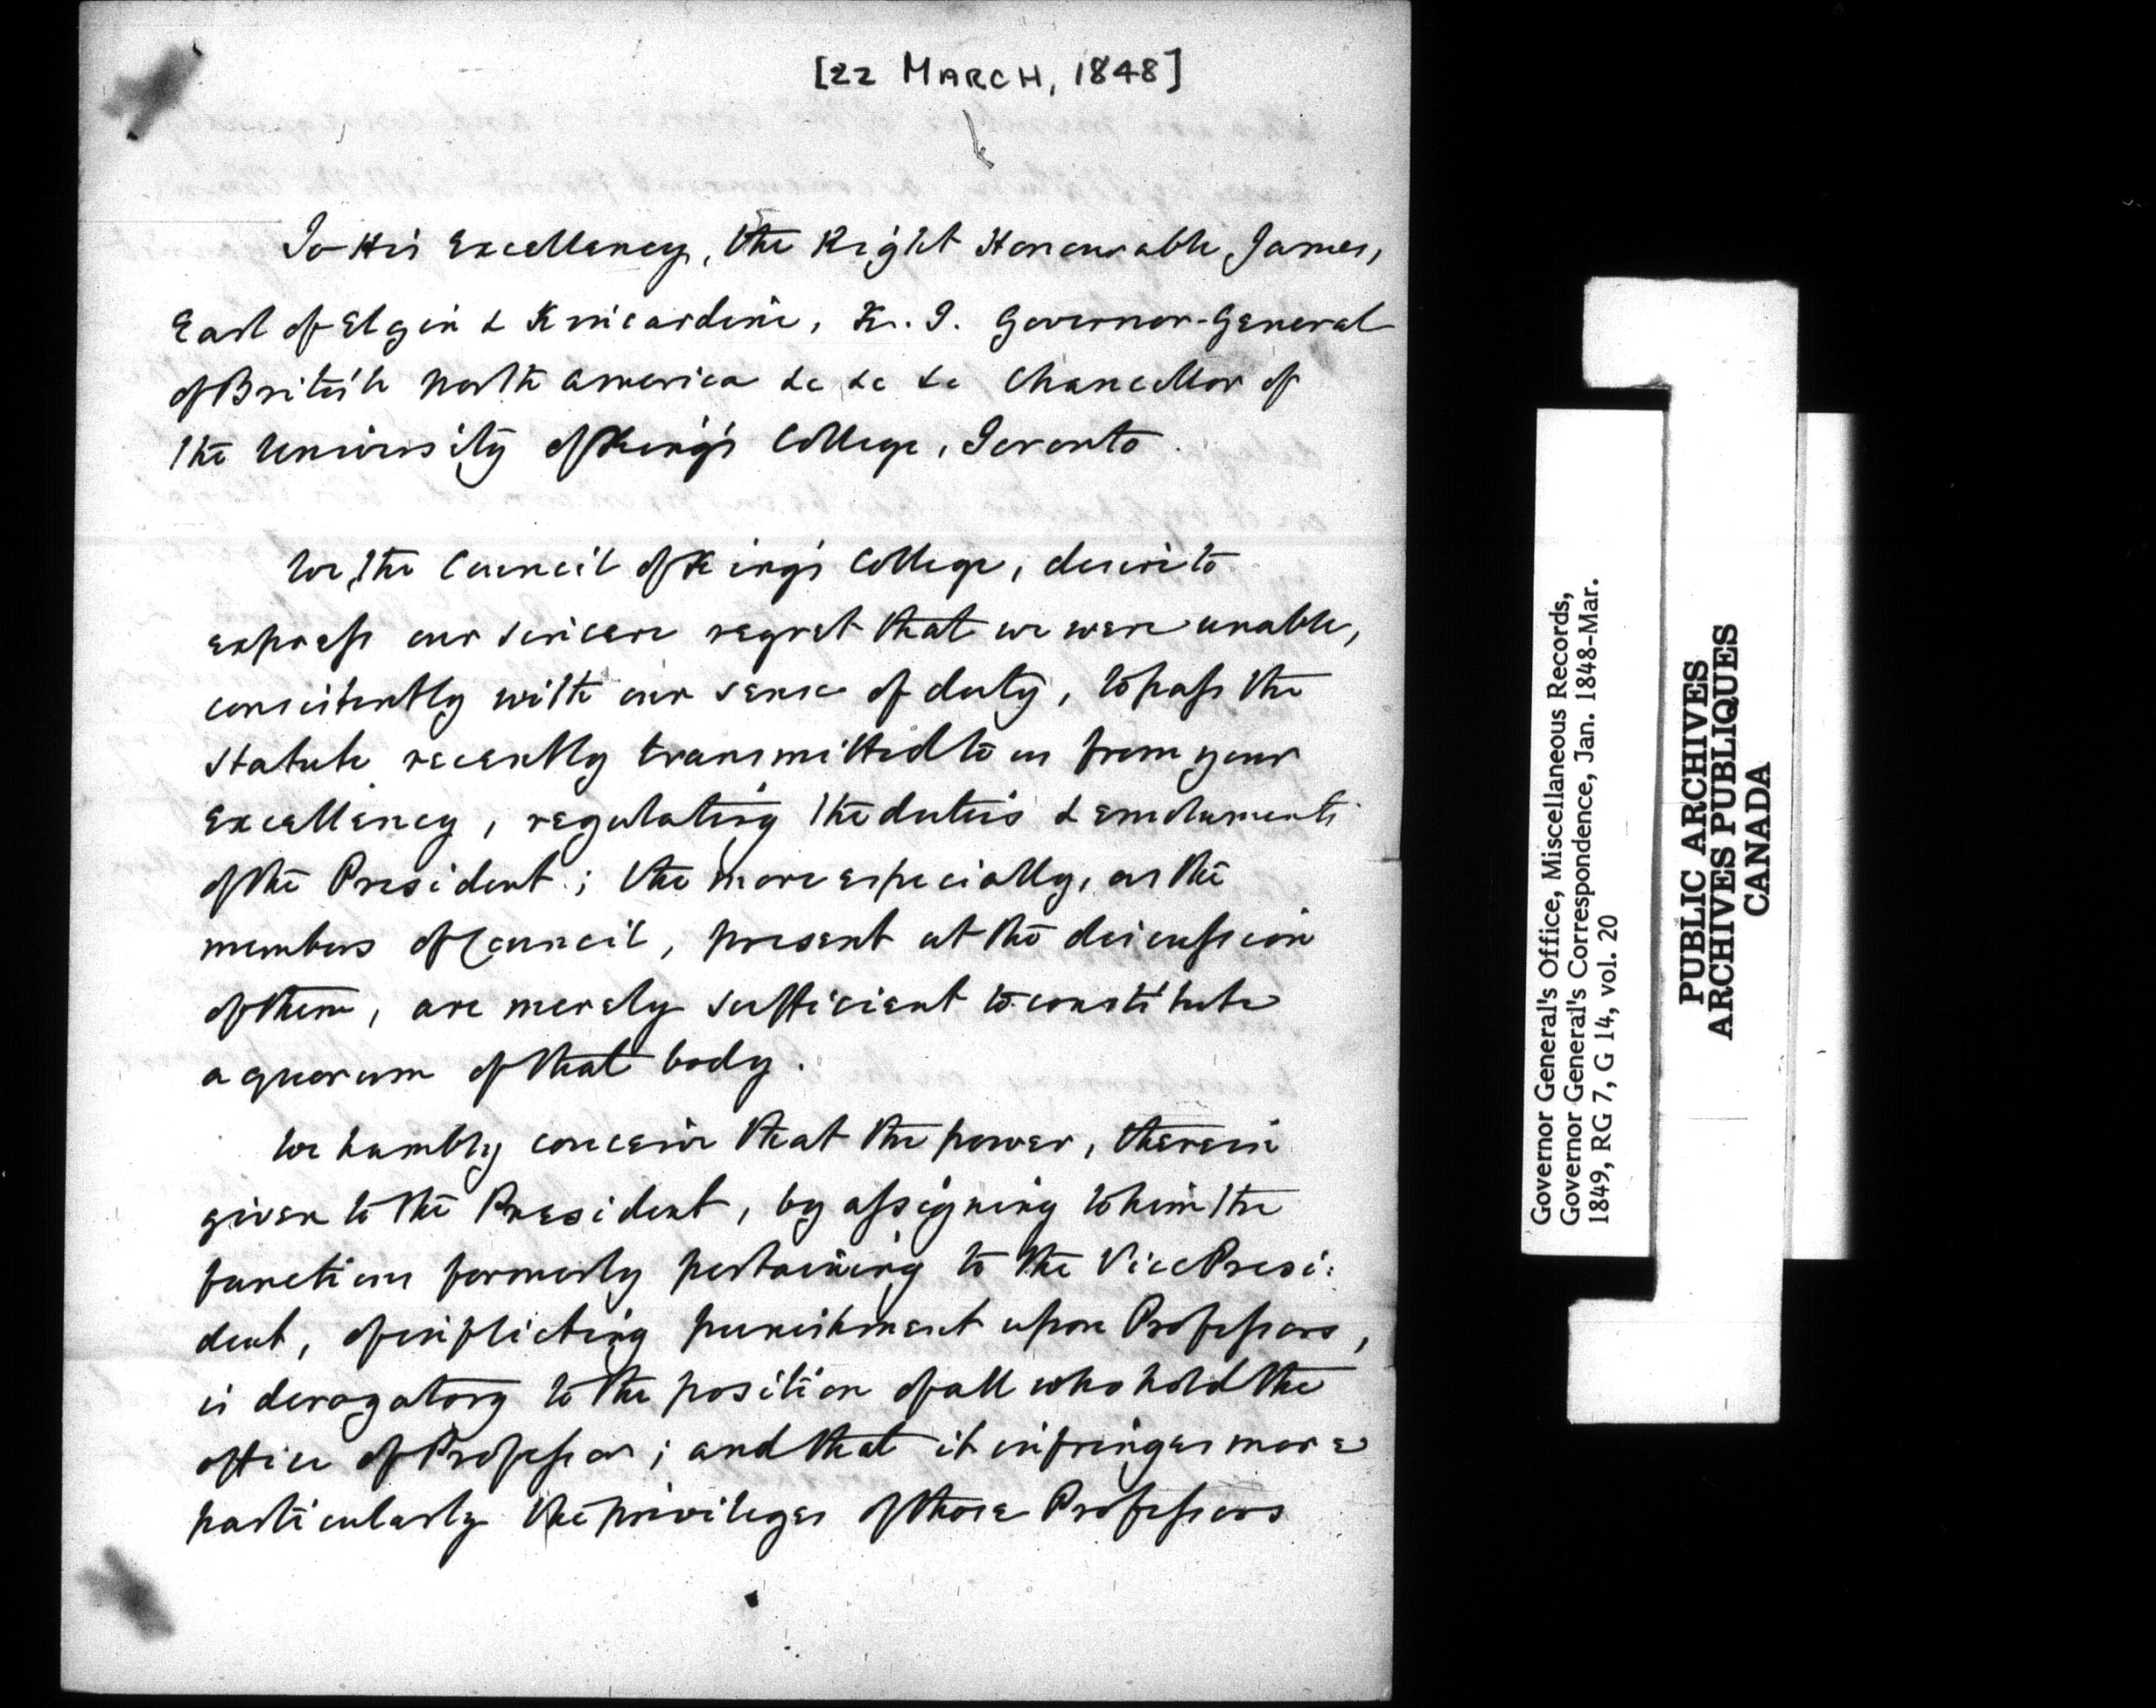 [22 MARCH, 1848]
To His Excellency, the Right Honourable, James,
Earl of Elgin & Kincardine, K. T. Governor-General
of British North America &c &c &c Chancellor of
the University of King's College, Toronto.
We, the Council of King's College, desire to
express our sincere regret that we were unable,
consistently with our sense of duty, to pass the
Statute recently transmitted to us from your
Excellency, regulating the duties & emoluments
of the President; the more especially, as the
members of Council, present at the discussion
of them, are merely sufficient to constitute
a quorum of that body.
We humbly conceive that the power, therein
given to the President, by assigning to him the
functions formerly pertaining to the Vice Presi:
dent, of inflicting punishment upon Professors,
is derogatory to the position of all who hold the
office of Professor; and that it infringes more
particularly the privileges of those Professors
Governor General's Office, Miscellaneous Records,
Governor General's Correspondence, Jan. 1848-Mar.
1849, RG 7, G 14, vol. 20
PUBLIC ARCHIVES
ARCHIVES PUBLIQUES
CANADA